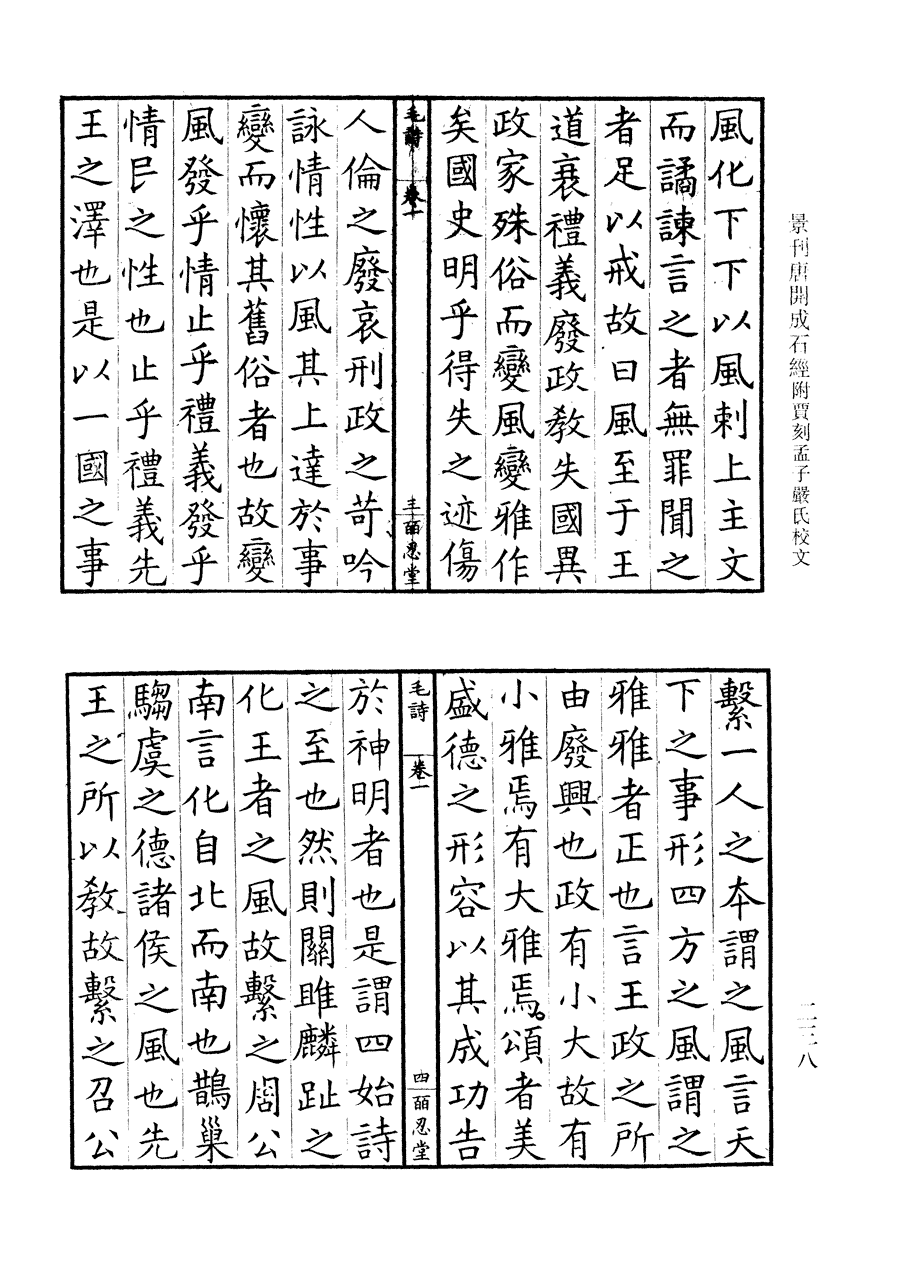 景刊唐開成石經附賈刻孟子嚴氏校文
風化下下以風刺上主文
而譎諫言之者無罪聞之
者足以戒故曰風至于王
道衰禮義廢政教失國異
政家殊俗而變風變雅作
矣國史明乎得失之迹傷
毛詩 卷一 三 皕忍堂
人倫之廢哀刑政之苛吟
詠情性以風其上達於事
變而懷其舊俗者也故變
風發乎情止乎禮義發乎
情民之性也止乎禮義先
王之澤也是以一國之事
繫一人之本謂之風言天
下之事形四方之風謂之
雅雅者正也言王政之所
由廢興也政有小大故有
小雅焉有大雅焉頌者美
盛德之形容以其成功告
毛詩 卷一 四 皕忍堂
於神明者也是謂四始詩
之至也然則關雎麟趾之
化王者之風故繫之周公
南言化自北而南也鵲巢
騶虞之德諸侯之風也先
王之所以教故繫之召公
二三八